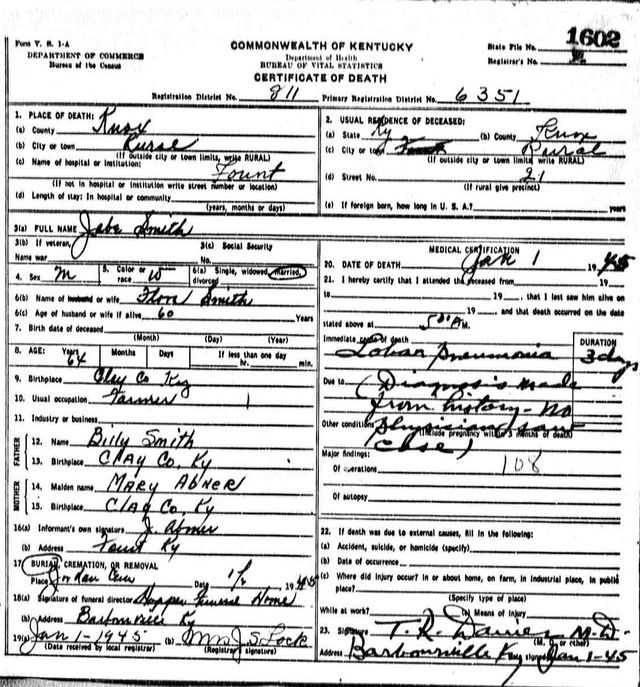 Form V. S. 1-A
DEPARTMENT OF COMMERCE
Bureau of the Census
COMMONWEALTH OF KENTUCKY
Department of Health
BUREAU OF VITAL STATISTICS
CERTIFICATE OF DEATH
State File No. 1602
Registrar's No.
Registration District No. 811 Primary Registration District No. 6351
1. PLACE OF DEATH:
(a) County Knox
(b) City or town Rural
(If outside city or town limits, write RURAL)
(c) Name of hospital or institution: Fount
(If not in hospital or institution write street number or location)
(d) Length of stay: In hospital or community
(years, months or days)
2. USUAL RESIDENCE OF DECEASED:
(a) State Ky (b) County Knox
(c) City or town Rural
(If outside city or town limits, write RURAL)
(d) Street No. 21
(If rural give precinct)
(e) If foreign born, how long in U. S. A.? years
3(a) FULL NAME Jabe Smith
3(b) If veteran, Name war 3(c) Social Security No.
4. Sex M 5. Color or race W 6(a) Single, widowed, married, divorced
6(b) Name of husband or wife Flora Smith
6(c) Age of husband or wife if alive 60 Years
7. Birth date of deceased
(Month) (Day) (Year)
8. AGE: Years 64 Months Days If less than one day
hr. min.
9. Birthplace Clay Co Ky
10. Usual occupation Farmer
11. Industry or business
FATHER
12. Name Billy Smith
13. Birthplace CLAY Co. Ky
MOTHER
14. Maiden name MARY ABNER
15. Birthplace Clay Co. Ky
16(a) Informant's own signature J. Abner
(b) Address Fount Ky
17 BURIAL, CREMATION, OR REMOVAL
Place Jordan Cem Date 1/2 1945
18(a) Signature of funeral director Hopper Funeral Home
(b) Address Barbourville Ky
19(a) Jan 1-1945 (b) Mrs J. S. Lock
(Date received by local registrar) (Registrar signature)
MEDICAL CERTIFICATION
20. DATE OF DEATH Jan 1 1945
21. I hereby certify that I attended the deceased from 19
to 19 , that I last saw him alive on
19 and that death occurred on the date
stated above at 5:01 AM.
Immediate cause of death DURATION
Lobar Pneumonia 3 days
Due to (Diagnosis made
from history - no
Other conditions physician saw
(Include pregnancy within 3 months of death)
case)
Major findings:
Of operations 108
Of autopsy
22. If death was due to external causes, fill in the following:
(a) Accident, suicide, or homicide (specify)
(b) Date of occurrence
(c) Where did injury occur? In or about home, on farm, in industrial place, in public
place?
(Specify type of place)
While at work? (e) Means of injury
23. Signature T. R. Davies M.D.
(M. D. or other)
Address Barbourville Ky Date signed Jan 1-45